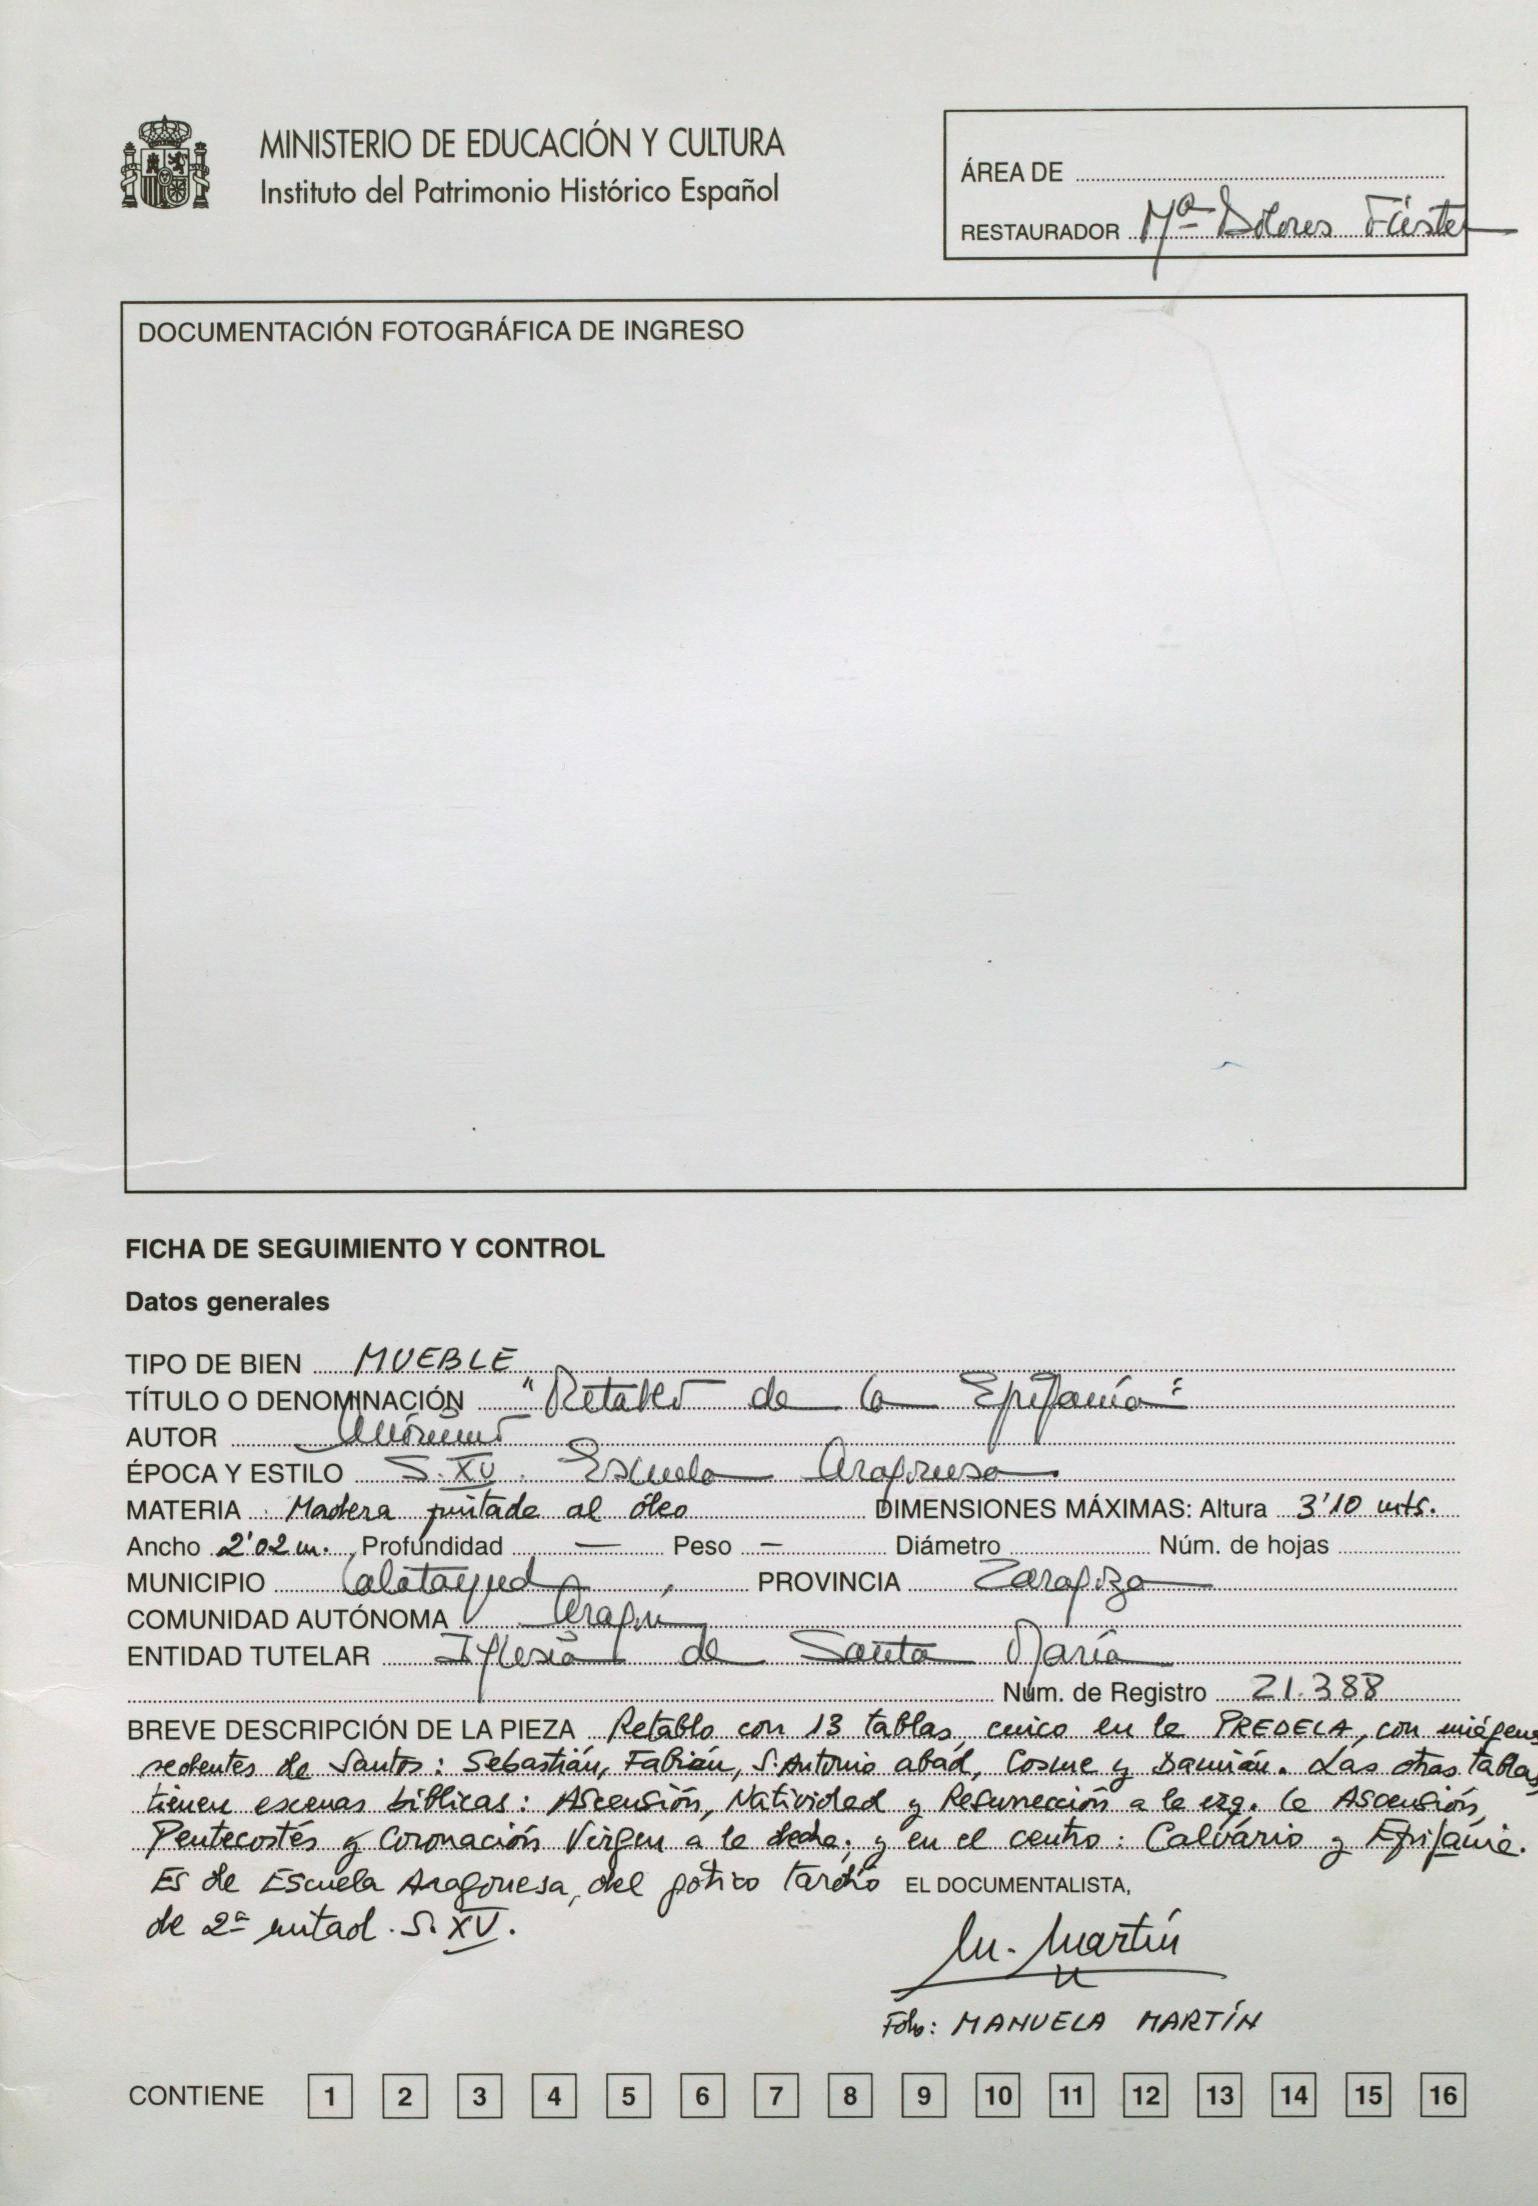 MINISTERIO DE EDUCACIÓN Y CULTURA
Instituto del Patrimonio Histórico Español
ÁREA DE
RESTAURADOR Mª Dolores Fúster
DOCUMENTACIÓN FOTOGRÁFICA DE INGRESO
FICHA DE SEGUIMIENTO Y CONTROL
Datos generales
TIPO DE BIEN MUEBLE
TÍTULO O DENOMINACIÓN "Retablo de la Epifanía"
AUTOR Anónimo
ÉPOCA Y ESTILO S. XV. Escuela Aragonesa.
MATERIA Madera pintada al óleo DIMENSIONES MÁXIMAS: Altura 3'10 mts.
Ancho 2'02 m. Profundidad — Peso — Diámetro Núm. de hojas
MUNICIPIO Calatayud, PROVINCIA Zaragoza
COMUNIDAD AUTÓNOMA Aragón
ENTIDAD TUTELAR Iglesia de Santa María
Núm. de Registro 21.388
BREVE DESCRIPCIÓN DE LA PIEZA Retablo con 13 tablas, cinco en la PREDELA, con imágenes
sedentes de Santos: Sebastián, Fabián, S. Antonio abad, Cosme y Damián. Las otras tablas
tienen escenas bíblicas: Ascensión, Natividad y Resurrección a la izq. la Ascensión,
Pentecostés y Coronación Virgen a la decha. y en el centro: Calvário y Epifanía.
Es de Escuela Aragonesa, del gótico tardío EL DOCUMENTALISTA,
de 2ª mitad. S. XV.
M. Martín
Fdo: MANUELA MARTÍN
CONTIENE 1 2 3 4 5 6 7 8 9 10 11 12 13 14 15 16